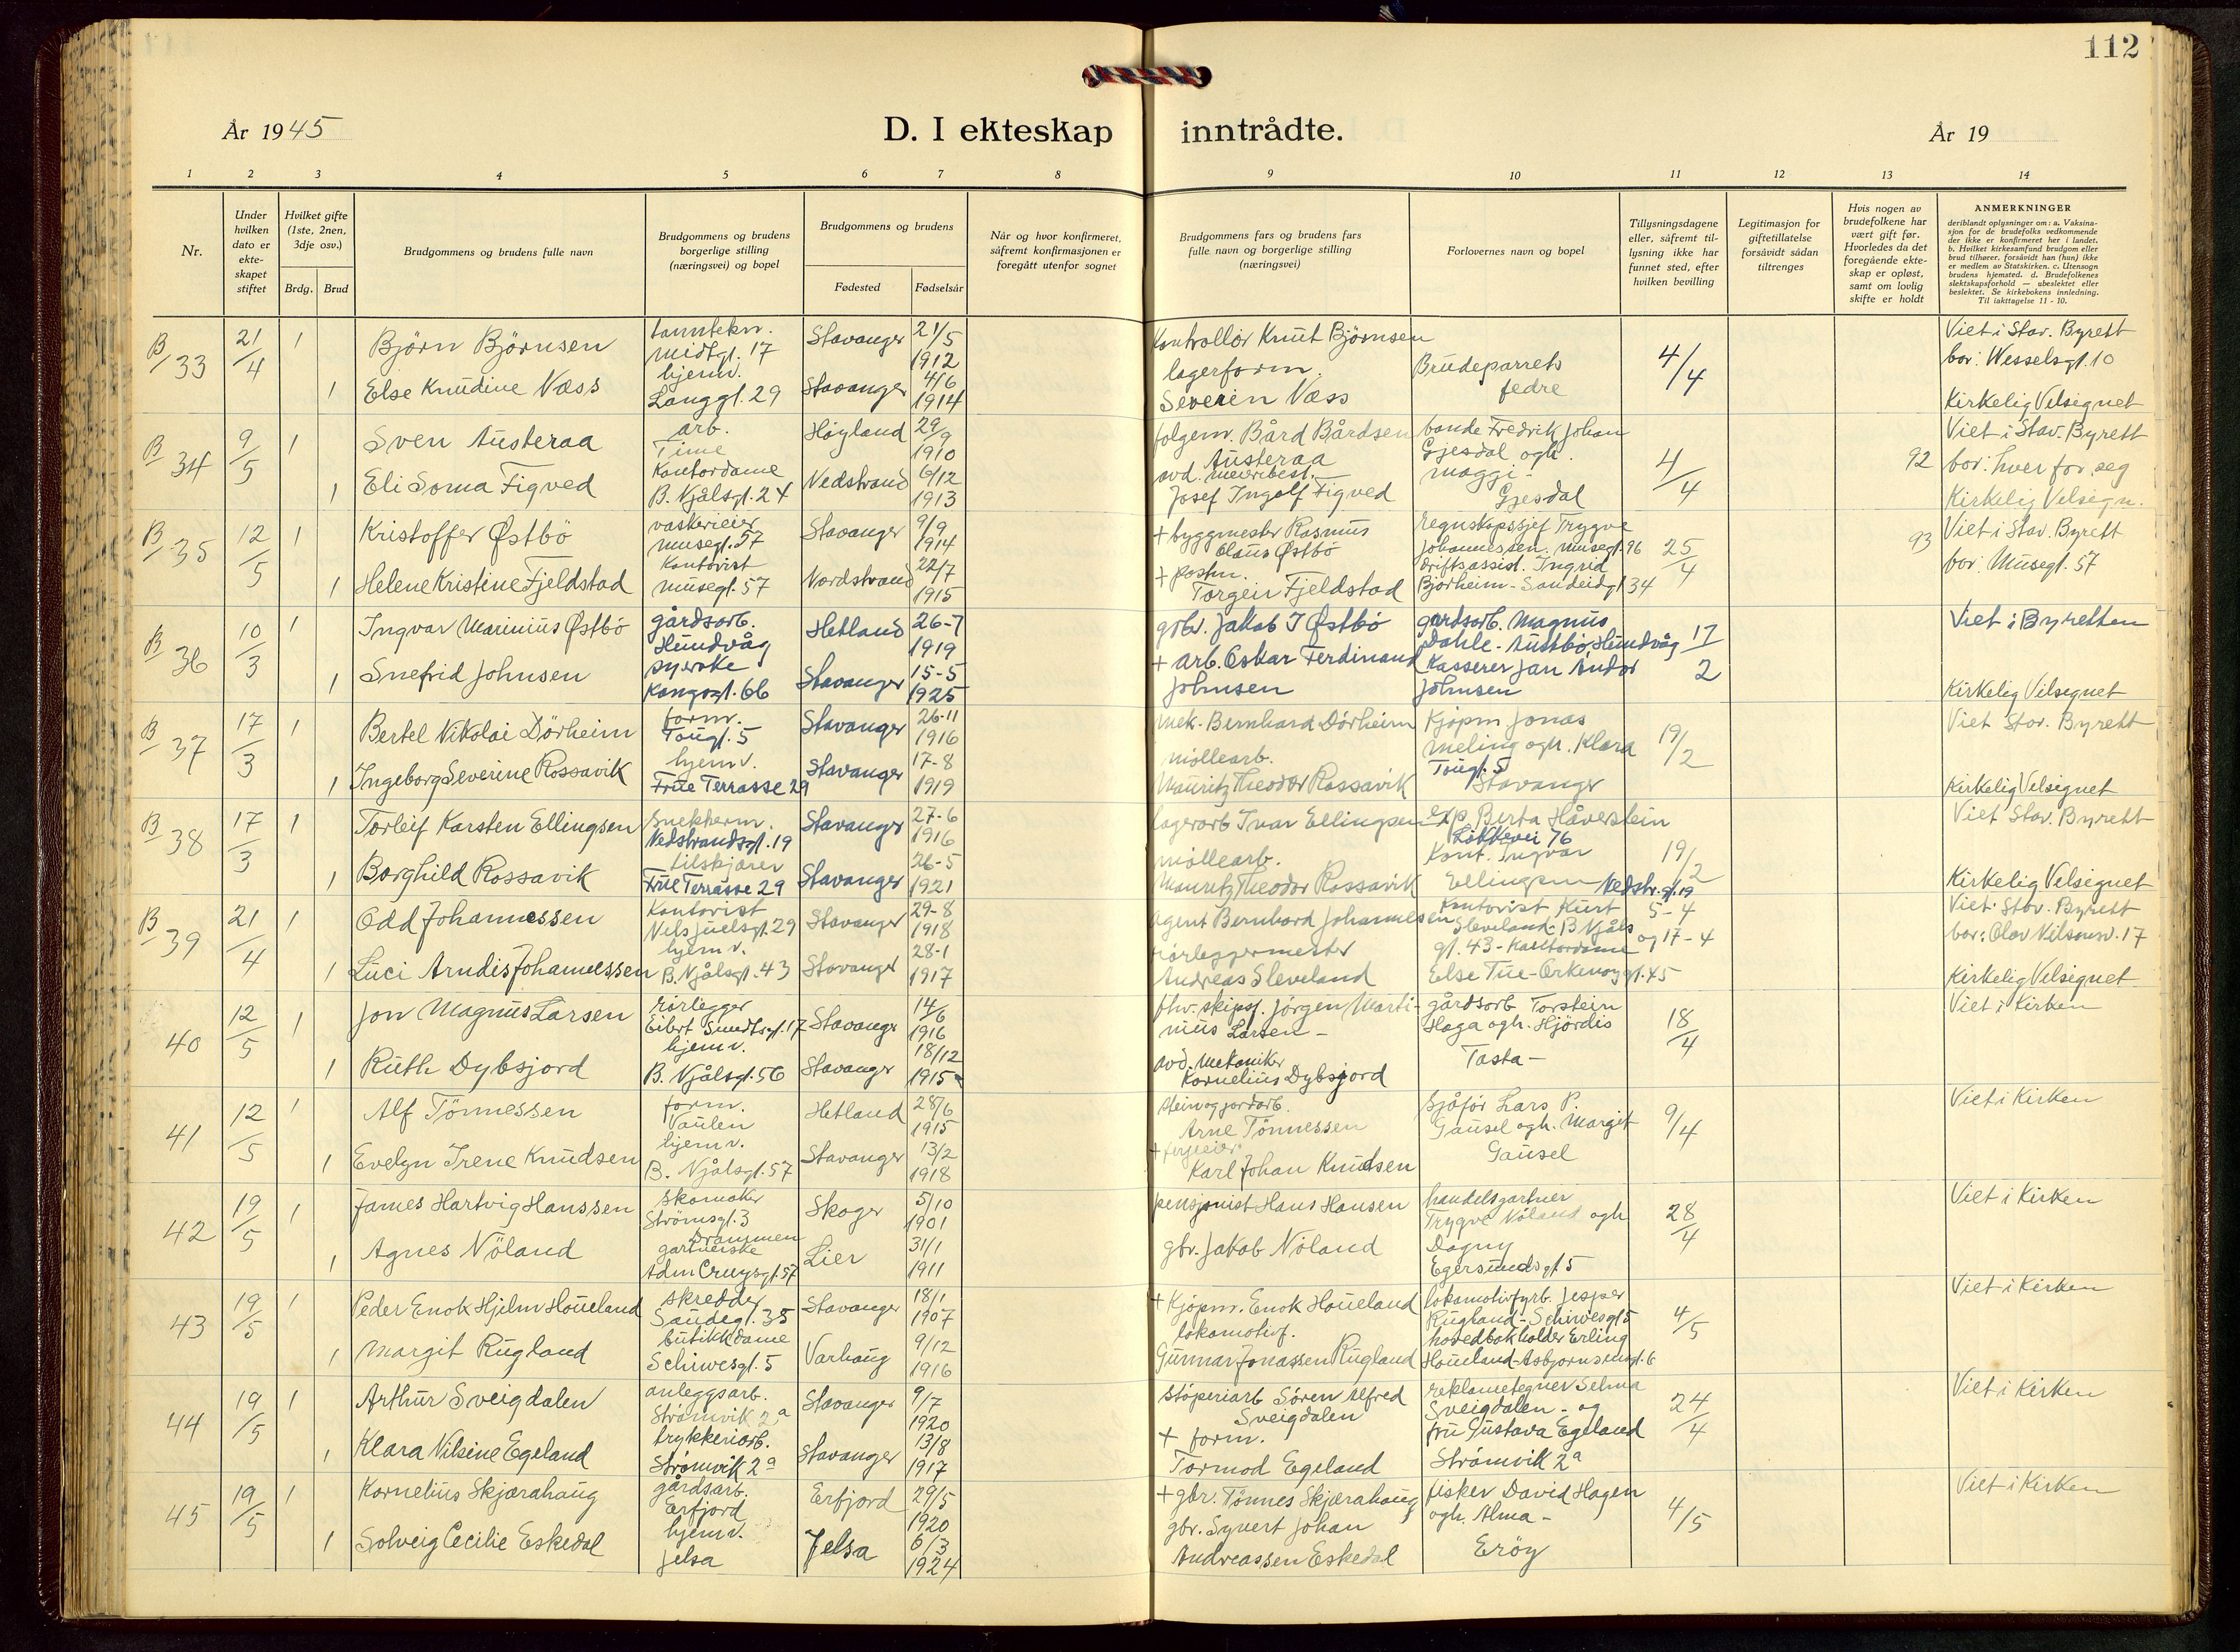 112
År 1945
D. I ekteskap inntrådte.
År 19
1 2 3 4 5 6 7 8 9 10 11 12 13 14
Nr.
Under hvilken dato er ekte-skapet stiftet
Hvilket gifte (1ste, 2nen, 3dje osv.)
Brdg. Brud
Brudgommens og brudens fulle navn
Brudgommens og brudens borgerlige stilling (næringsvei) og bopel
Brudgommens og brudens
Fødested
Fødselsår
Når og hvor konfirmeret, såfremt konfirmasjonen er foregått utenfor sognet
Brudgommens fars og brudens fars fulle navn og borgerlige stilling (næringsvei)
Forlovernes navn og bopel
Tillysningsdagene eller, såfremt til-lysning ikke har funnet sted, efter hvilken bevilling
Legitimasjon for giftetillatelse forsåvidt sådan tiltrenges
Hvis nogen av brudefolkene har vært gift før. Hvorledes da det foregående ekte-skap er opløst, samt om lovlig skifte er holdt
ANMERKNINGER
deriblandt oplysninger om: a. Vaksina-sjon for de brudefolks vedkommende der ikke er konfirmeret her i landet. b. Hvilket kirkesamfund brudgom eller brud tilhører, forsåvidt han (hun) ikke er medlem av Statskirken. c. Utensogn brudens hjemsted. d. Brudefolkenes slektskapsforhold — ubeslektet eller beslektet. Se kirkebokens innledning. Til iakttagelse 11 - 10.
B/33 21/4 1 Björn Björnsen tanntekn. Midtgt. 17 Stavanger 21/5 1912
1 Else Knudine Næss hjemv. Langgt. 29 Stavanger 4/6 1914
Kontrollör Knut Björnsen
lagerform. Severin Næss
Brudeparrets fedre
4/4
Viet i Stav. Byrett
bor: Wesselsgt. 10
Kirkelig Velsignet
B/34 9/5 1 Sven Austeraa arb. Time Höyland 29/9 1910
1 Eli Soma Figved Kontordame B. Njålsgt. 24 Nedstrand 6/12 1913
Bård Bårdsen Austeraa
avd. meieribest. Josef Ingolf Figved
bonde Fredrik Johan Gjesdal ogh. Maggi - Gjesdal
4/4
92
Viet i Stav. Byrett
bor: hver for seg
Kirkelig Velsign.
B/35 12/5 1 Kristoffer Østbö vaskerieier Musegt. 57 Stavanger 9/9 1914
1 Helene Kristine Fjeldstad Kontorist Musegt. 57 Nordstrand 22/7 1915
+ byggmester Rasmus Olaus Østbö
+ postm. Torgeir Fjeldstad
regnskapssjef Trygve Johannessen. Musegt. 96
driftsassist. Ingrid Bjorheim - Sandeidgt 34
25/4
93
Viet i Stav. Byrett
bor: Musegt. 57
B/36 10/3 1 Ingvar Marinius Østbö gårdsarb. Hundvåg Hetland 26-7 1919
1 Snefrid Johnsen syerske Kongsgt. 66 Stavanger 15-5 1925
grbr. Jakob J Østbö
+ arb. Oskar Ferdinand Johnsen
gardsarb. Magnus Dahle - Austbö, Hundvåg
Kasserer Jan Andor Johnsen
17/2
Viet i Byretten
Kirkelig Velsignet
B/37 17/3 1 Bertel Nikolai Dörheim form. Tougt. 5 Stavanger 26-11 1916
1 Ingeborg Severine Rossavik hjemv. Frue Terrasse 29 Stavanger 17-8 1919
mek. Bernhard Dörheim
möllearb. Mauritz Theodor Rossavik
Kjöpm Jonas Meling ogh. Klara Tougt. 5 Stavanger
19/2
Viet Stav. Byrett
Kirkelig Velsignet
B/38 17/3 1 Torleif Karsten Ellingsen Snekkerm. Nedstrandsgt. 19 Stavanger 27-6 1916
1 Borghild Rossavik tilskjærer Frue Terrasse 29 Stavanger 26-5 1921
lagerarb Ivar Ellingsen
möllearb. Mauritz Theodor Rossavik
exp. Berta Håverstein Lökkevei 76
Kont. Ingvar Ellingsen Nedstr. gt. 19
19/2
Viet Stav. Byrett
Kirkelig Velsignet
B/39 21/4 1 Odd Johannessen Kontorist Nils Juelsgt. 29 Stavanger 29-8 1918
1 Luci Arndis Johannessen hjemv. B. Njålsgt. 43 Stavanger 28-1 1917
agent Bernhard Johannesen
rörleggermester Andreas Sleveland
Kontorist Kurt Sleveland - B Njåls gt. 43 - Kontordame Else Tue - Orkenöygt. 45
5-4 og 17-4
Viet Stav. Byrett
bor: Olav Nilsensv. 17
Kirkelig Velsignet
40 12/5 1 Jon Magnus Larsen rörlegger Eilert Smidtsgt. 17 Stavanger 14/6 1916
1 Ruth Dybsjord hjemv. B. Njålsgt. 56 Stavanger 18/12 1915
fhv. skipsf. Jörgen Martinius Larsen -
avd. mekaniker Kornelius Dybsjord
gårdsarb Torstein Haga ogh. Hjördis Tasta -
18/4
Viet i Kirken
41 12/5 1 Alf Tönnessen form. Vaulen Hetland 28/6 1915
1 Evelyn Irene Knudsen hjemv. B. Njålsgt. 57 Stavanger 13/2 1918
stein og jordarb. Arne Tönnessen
+ Karl Johan Knudsen
Sjåför Lars P. Gausel ogh. Margit Gausel
9/4
Viet i Kirken
42 19/5 1 James Hartvig Hanssen Skomaker Strömsgt. 3 Drammen Skoger 5/10 1901
1 Agnes Nöland gartnerske Adm Cruysgt. 57 Lier 31/1 1911
pensjonist Hans Hansen
gbr. Jakob Nöland
handelsgartner Trygve Nöland ogh Dagny Egersundsgt. 5
28/4
Viet i Kirken
43 19/5 1 Peder Enok Hjilm Houeland skredder Saudegt. 35 Stavanger 18/1 1907
1 Margit Rugland butikkdame Schiwesgt. 5 Varhaug 9/12 1916
+ Kjöpm. Enok Houeland
lokomotivf. Gunnar Jonassen Rugland
lokomotivfyrb. Jesper Rugland - Schiwesgt 5
hovedbokholder Erling Houeland - Asbjornsensgt. 6
4/5
Viet i Kirken
44 19/5 1 Arthur Sveigdalen anleggsarb. Strömvik 2a Stavanger 9/7 1920
1 Klara Nilsine Egeland trykkeriarb. Strömvik 2a Stavanger 13/8 1917
stöperiarb Sören Alfred Sveigdalen
+ form. Tormod Egeland
reklametegner Selma Sveigdalen - og fru Gustava Egeland Strömvik 2a
24/4
Viet i Kirken
45 19/5 1 Kornelius Skjærahaug gårdsarb. Erfjord Erfjord 29/5 1920
1 Solveig Cecilie Eskedal hjemv. Jelsa Jelsa 6/3 1924
+ gbr. Tönnes Skjærahaug
gbr. Syvert Johan Andreassen Eskedal
fisker David Hagen ogh. Alma - Eröy
4/5
Viet i Kirken